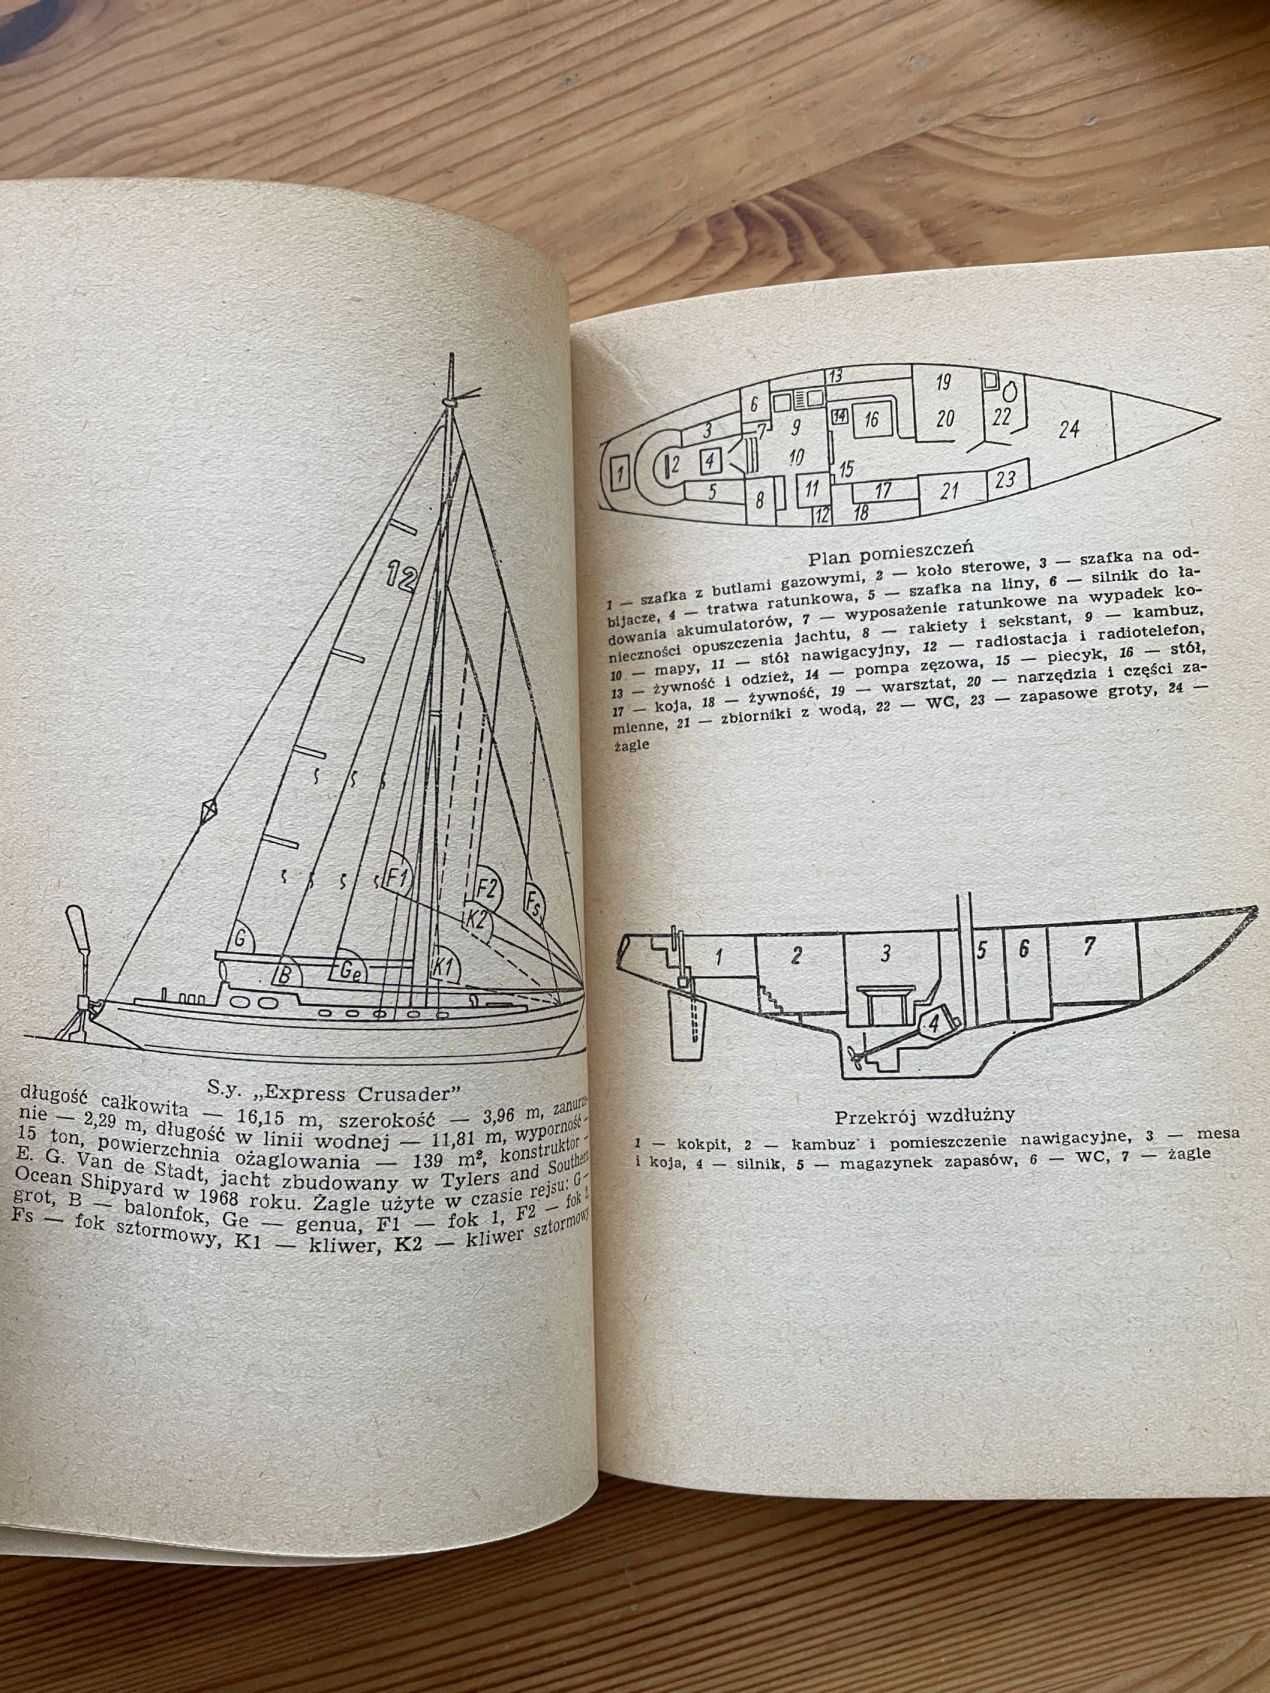 12
G
B
Ge
F1
F2
K2
Fs
K1
S.y. „Express Crusader”
długość całkowita — 16,15 m, szerokość — 3,96 m, zanurze-
nie — 2,29 m, długość w linii wodnej — 11,81 m, wyporność —
15 ton, powierzchnia ożaglowania — 139 m², konstruktor —
E. G. Van de Stadt, jacht zbudowany w Tylers and Southern
Ocean Shipyard w 1968 roku. Żagle użyte w czasie rejsu: G —
grot, B — balonfok, Ge — genua, F1 — fok 1, F2 — fok 2,
Fs — fok sztormowy, K1 — kliwer, K2 — kliwer sztormowy
1
2
3
4
5
6
7
8
9
10
11
12
13
14
15
16
17
18
19
20
21
22
23
24
Plan pomieszczeń
1 — szafka z butlami gazowymi, 2 — koło sterowe, 3 — szafka na od-
bijacze, 4 — tratwa ratunkowa, 5 — szafka na liny, 6 — silnik do ła-
dowania akumulatorów, 7 — wyposażenie ratunkowe na wypadek ko-
nieczności opuszczenia jachtu, 8 — rakiety i sekstant, 9 — kambuz,
10 — mapy, 11 — stół nawigacyjny, 12 — radiostacja i radiotelefon,
13 — żywność i odzież, 14 — pompa zęzowa, 15 — piecyk, 16 — stół,
17 — koja, 18 — żywność, 19 — warsztat, 20 — narzędzia i części za-
mienne, 21 — zbiorniki z wodą, 22 — WC, 23 — zapasowe groty, 24 —
żagle
1
2
3
4
5
6
7
Przekrój wzdłużny
1 — kokpit, 2 — kambuz i pomieszczenie nawigacyjne, 3 — mesa
i koja, 4 — silnik, 5 — magazynek zapasów, 6 — WC, 7 — żagle